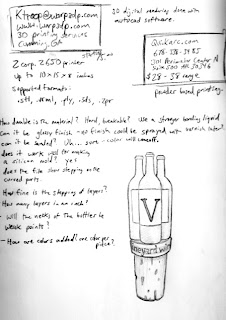 Ktroop@warp3dp.com
www.warp3dp.com
3D printing services
Cumming, GA
3D digital rendering done with
autocad software.
Quikarc.com
678-
$28-38 range
powder based printing.
Z corp. Z650 printer
up to 10 x 15 x 8 inches
supported formats:
.stl, .wrml, .ply, .3ds, .zpr
How durable is the material? Hard, breakable? Use a stronger bonding liquid
can it be glossy finish. → finish could be sprayed with varnish instead
can it be sanded? Uh... sure - color will come off.
does it work well for making
a silicon mold? yes
does the film show stepping on the
curved parts.
How fine is the stepping of layers?
How many layers in an inch?
- will the necks of the bottles be
weak points?
- How are colors added? one color per
piece?
V
neyard wine